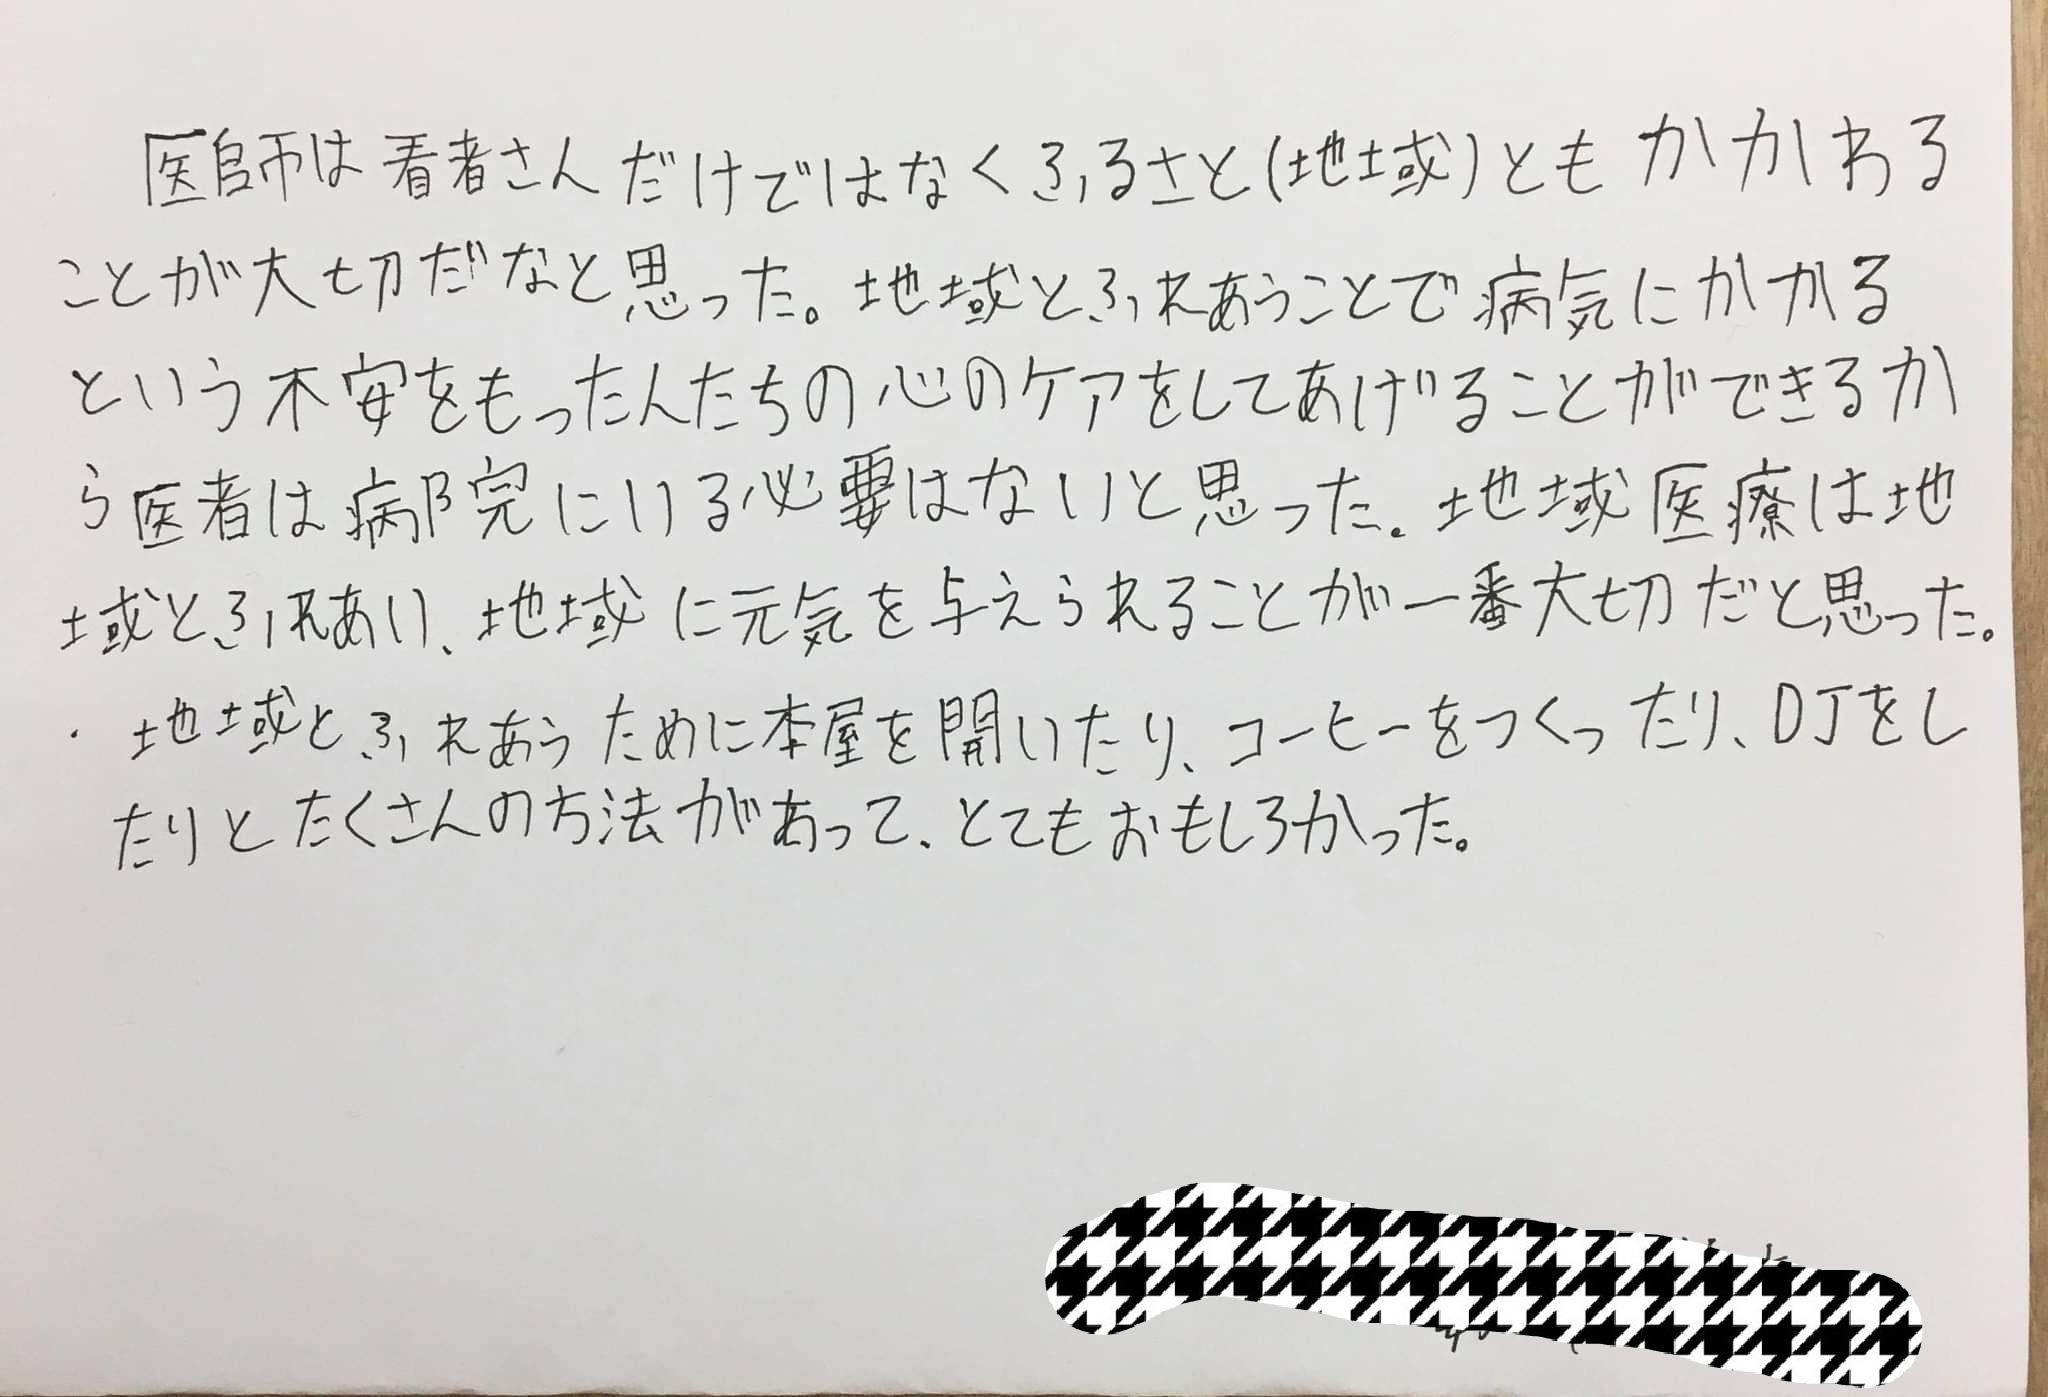 医師は看者さんだけではなくふるさと(地域)ともかかわる
ことが大切だなと思った。地域とふれあうことで病気にかかる
という不安をもった人たちの心のケアをしてあげることができるか
ら医者は病院にいる必要はないと思った。地域医療は地
域とふれあい、地域に元気を与えられることが一番大切だと思った。
・地域とふれあうために本屋を開いたり、コーヒーをつくったり、DJをし
たりとたくさんの方法があって、とてもおもしろかった。